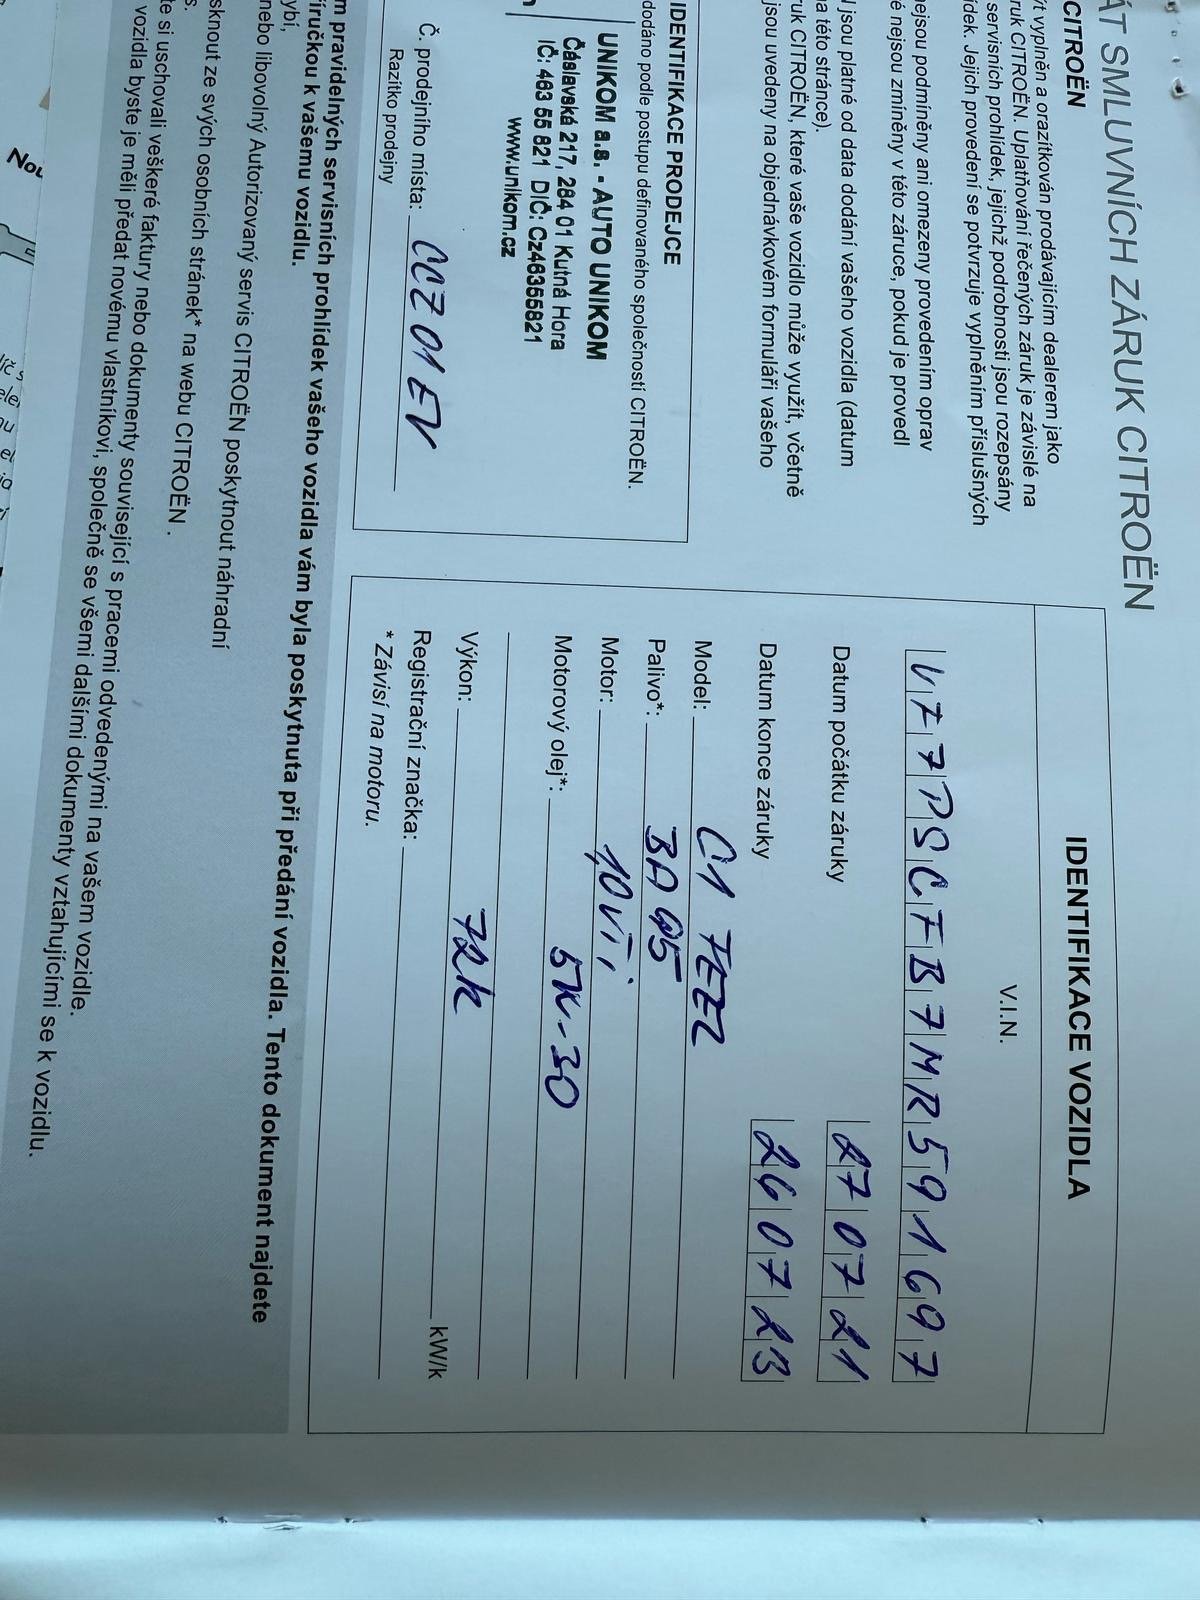 ÁT SMLUVNÍCH ZÁRUK CITROËN
CITROËN
ýt vyplněn a orazítkován prodávajícím dealerem jako
ruk CITROËN. Uplatňování řečených záruk je závislé na
servisních prohlídek, jejichž podrobnosti jsou rozepsány
ídek. Jejich provedení se potvrzuje vyplněním příslušných
nejsou podmíněny ani omezeny provedením oprav
é nejsou zmíněny v této záruce, pokud je provedl
jsou platné od data dodání vašeho vozidla (datum
na této stránce).
ruk CITROËN, které vaše vozidlo může využít, včetně
jsou uvedeny na objednávkovém formuláři vašeho
IDENTIFIKACE PRODEJCE
dodáno podle postupu definovaného společností CITROËN.
UNIKOM a.s. - AUTO UNIKOM
Čáslavská 217, 284 01 Kutná Hora
IČ: 463 55 821 DIČ: Cz46355821
www.unikom.cz
Č. prodejního místa: CCZ01EV
Razítko prodejny
IDENTIFIKACE VOZIDLA
V.I.N.
VF7PSCFB7MR591697
Datum počátku záruky 270721
Datum konce záruky 260723
Model: C1 FEEL
Palivo*: BA 95
Motor: 1,0VTi
Motorový olej*: 5W-30
Výkon: 72k kW/k
Registrační značka:
* Závisí na motoru.
m pravidelných servisních prohlídek vašeho vozidla vám byla poskytnuta při předání vozidla. Tento dokument najdete
íručkou k vašemu vozidlu.
ybí,
nebo libovolný Autorizovaný servis CITROËN poskytnout náhradní
sknout ze svých osobních stránek* na webu CITROËN.
s.
te si uschovali veškeré faktury nebo dokumenty související s pracemi odvedenými na vašem vozidle.
vozidla byste je měli předat novému vlastníkovi, společně se všemi dalšími dokumenty vztahujícími se k vozidlu.